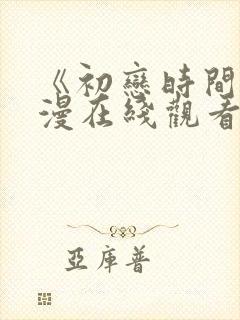 《初戀時間
漫在綫觀看
亞庫普